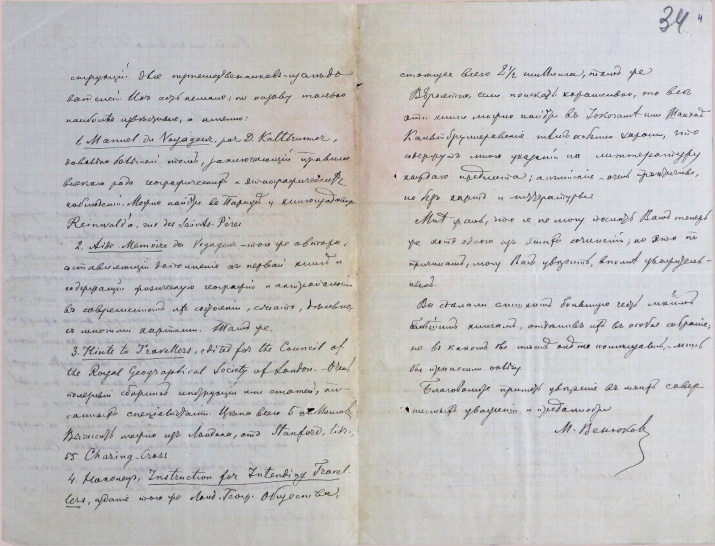 34
струкцій для путешественниковъ-изслѣдо
вателей. Ихъ есть немало; но назову только
наиболѣе извѣстныя, а именно:
1. Manuel du Voyageur, par D. Kaltbrunner,
довольно большой томъ, заключающій правила
всякаго рода географическихъ и этнографическихъ
наблюденій. Можно найдти въ Парижѣ у книгопродавца
Reinwald'a, rue des Saints-Pères
2. Aide Memoire du Voyageur – того же автора,
составляющій дополненіе къ первой книгѣ и
содержащій физическую географію и антропологію
въ современномъ ихъ состояніи,
съ многими картами. Тамъ же.
3. Hints to Travellers, edited for the Council of
the Royal Geographical Society of London. – Очень
полезный сборникъ инструкцій или статей,
специалистами. Цѣна всего 5 шиллинговъ.
Выписать можно изъ Лондона, отъ Stanford,
55 Charing-Cross
4. Наконецъ, Instruction for Intending Travel-
lers, изданіе того же Лонд. Геогр. Общества,
стоющее всего 2 1/2 шиллинга, тамъ же
Вѣроятно, если поискать хорошенько, то всѣ
эти книги можно найдти въ или
Кальтбруннеровскія особенно хороши, что
содержатъ много указаній на литературу
каждаго предмета; англійскія – очень практичны,
но безъ картъ и литературы.
Мнѣ жаль, что я не могу послать Вамъ теперь
же хоть одного изъ этихъ сочиненій; но это по
причинамъ, могу Васъ увѣрить, вполнѣ уважитель-
нымъ.
Вы сдѣлали слишкомъ большую честь моимъ
книгамъ, отдѣливъ ихъ въ особое собраніе,
но въ какомъ бы числѣ онѣ ни помѣщались – лишь
бы приносили пользу.
Благоволите принять увѣреніе въ моемъ совер
шенномъ уваженіи и преданности
М. Венюковъ